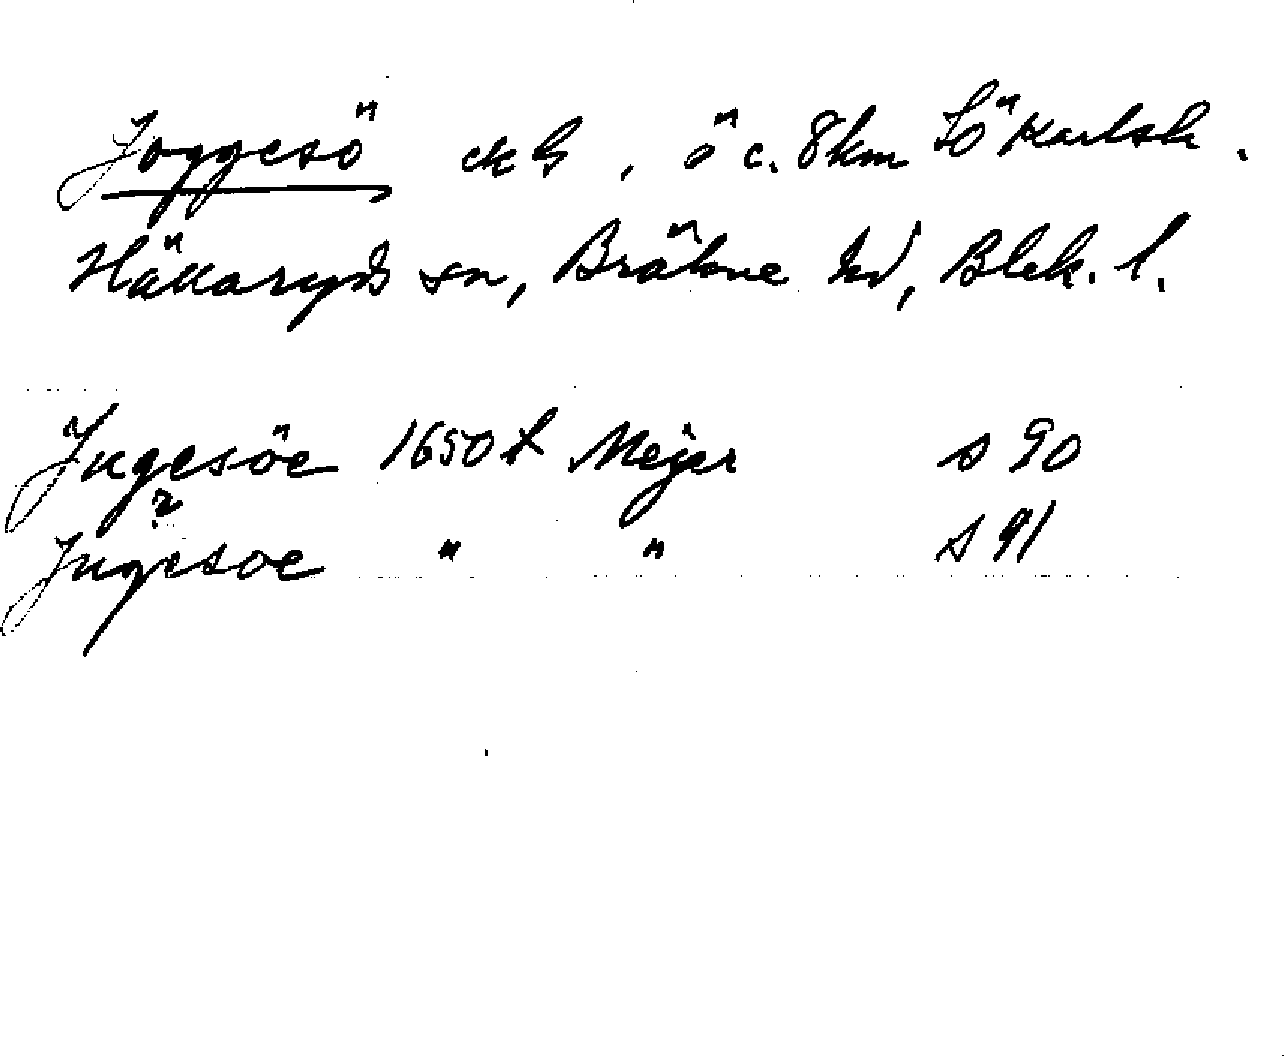 Joggesö ekG, ö c. 8km SÖ Karlsh.
Häkaryds sn, Bräkne hd, Blek. l.
Jugesöe 1650t Mejer s 90
?
Jugesoe " " s 91